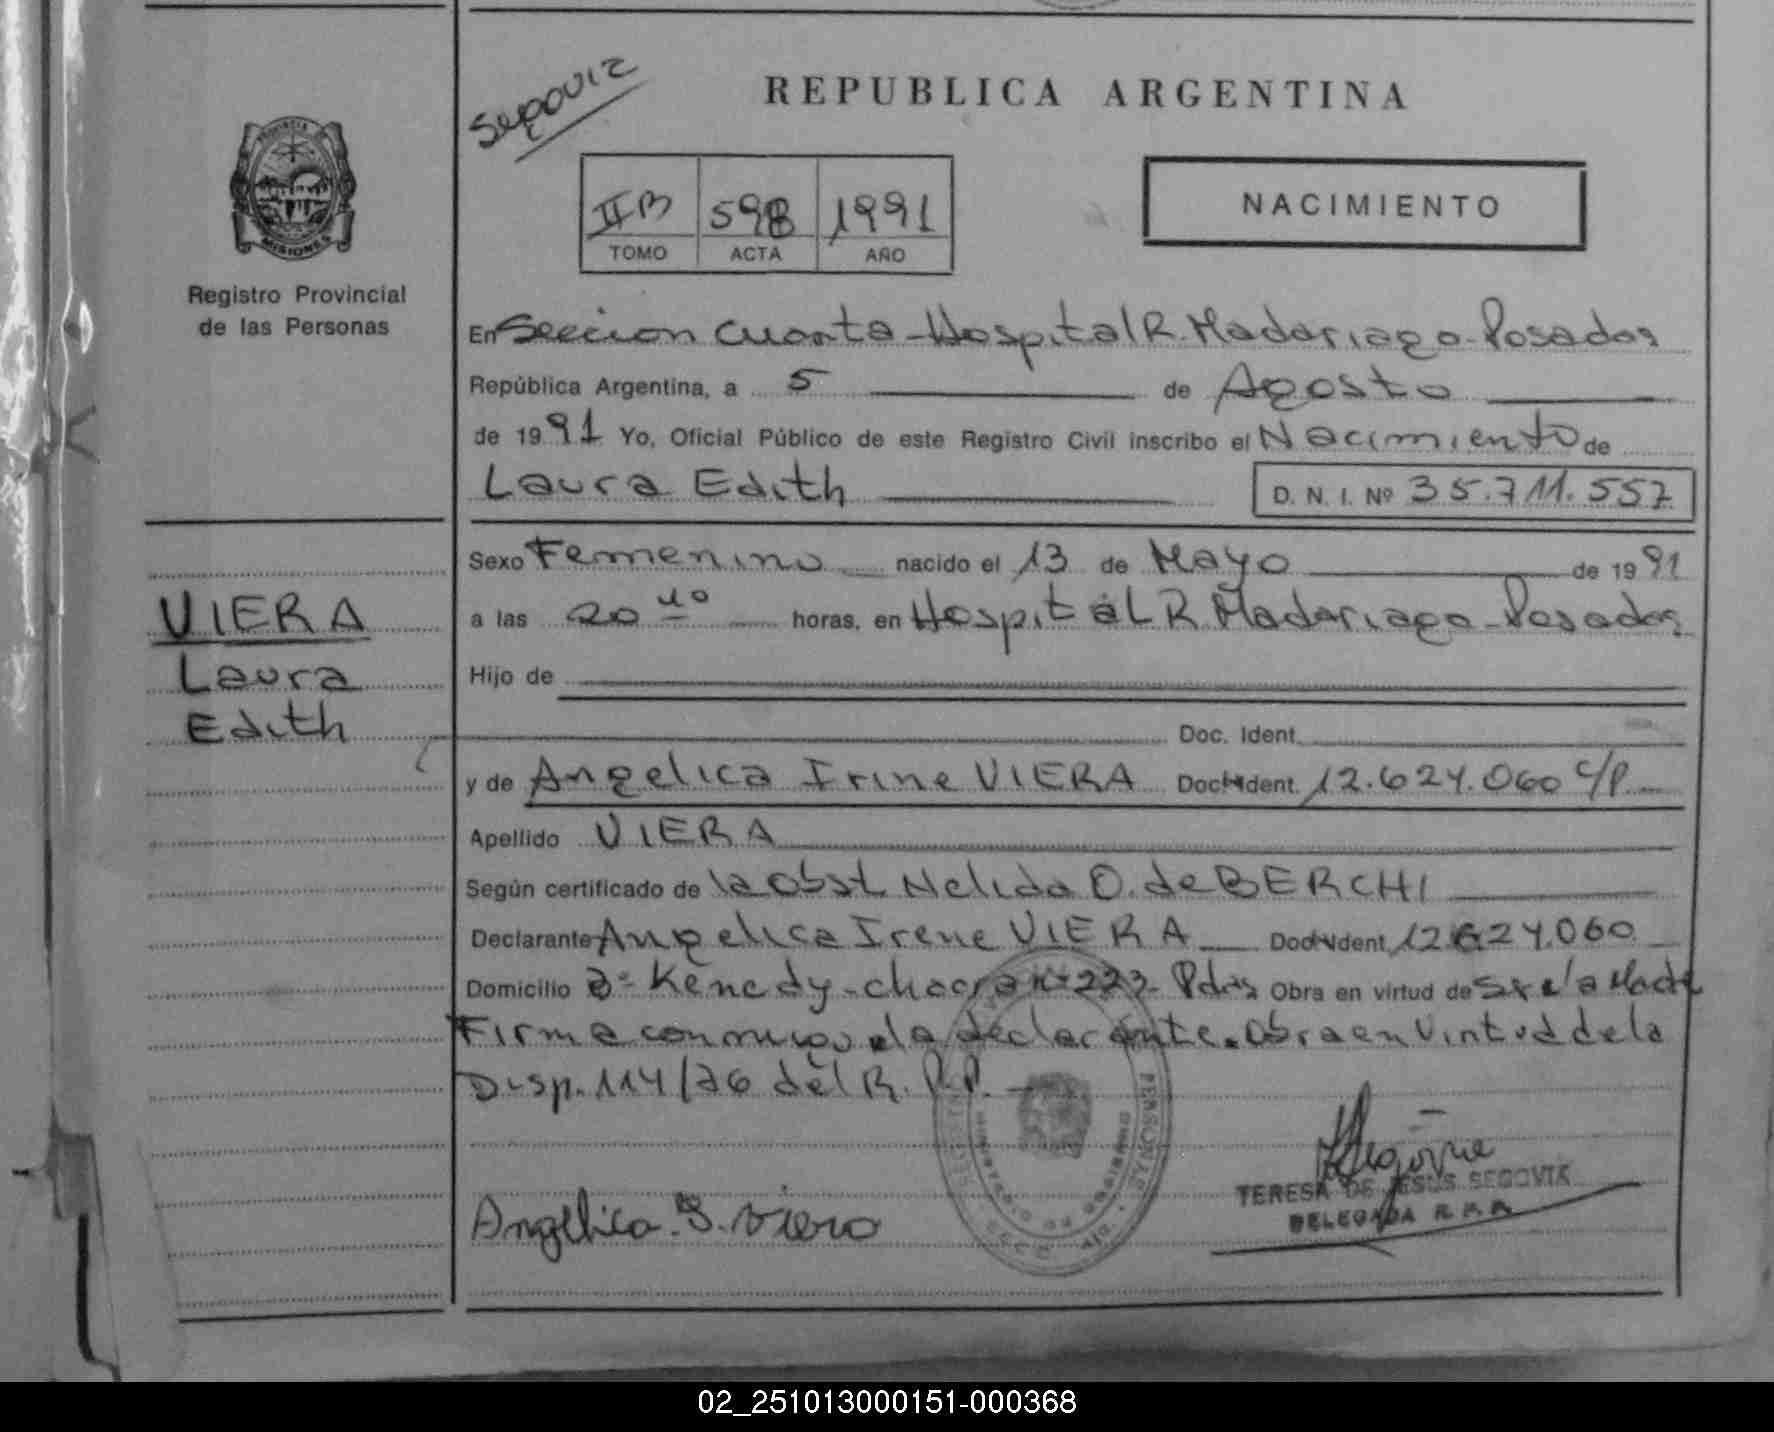 REPUBLICA ARGENTINA
II B 598 1991
TOMO ACTA AÑO
NACIMIENTO
PROVINCIA
MISIONES
Registro Provincial
de las Personas
En Seccion Cuarta - Hospital R. Madariaga - Posadas
República Argentina, a 5 de Agosto
de 1991 Yo, Oficial Público de este Registro Civil inscribo el Nacimiento de
Laura Edith D. N. I. Nº 35.711.557
Sexo Femenino nacido el 13 de Mayo de 1991
VIERA
Laura
Edith
a las 20 40 horas, en Hospital R. Madariaga - Posadas
Hijo de
Doc. Ident.
y de Angelica Irine VIERA Doc. Ident. 12.624.060 C/P
Apellido VIERA
Según certificado de la Obst. Nelida O. de BERCHI
Declarante Angelica Irene VIERA Doc. Ident. 12.624.060
Domicilio Bº Kenedy - chacra Nº 223 - Pdas. Obra en virtud de ser la Madre
Firma conmigo la declarante. Obra en Virtud de la
Disp. 114/76 del R. P. P.
Angelica I. Viera
TERESA DE JESUS SEGOVIA
DELEGADA R. P. P.
02_251013000151-000368